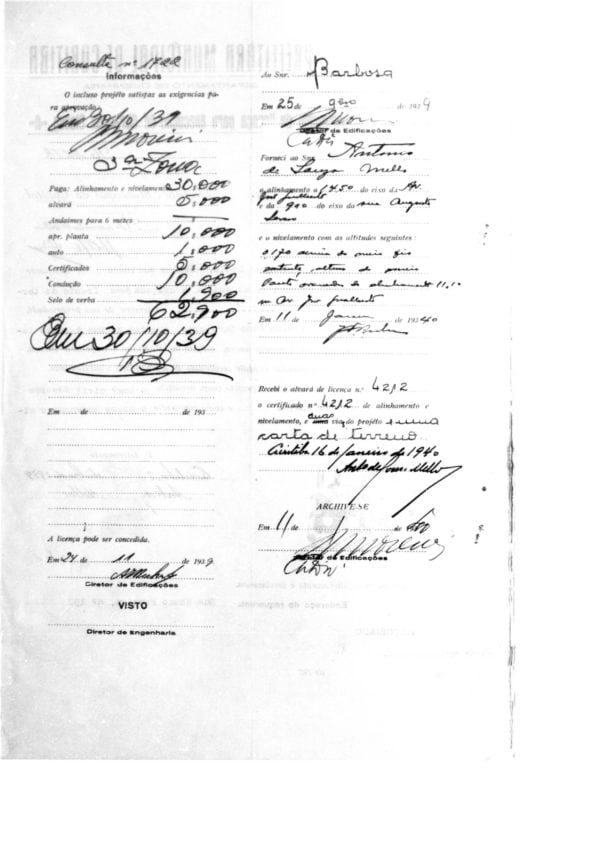 Consulte nº 1722
Informações
O incluso projéto satisfaz as exigencias pa-
ra aprovação
Em 30/10/39
3ª Zona
Paga: Alinhamento e nivelamento 30,000
alvará 5,000
Andaimes para 6 mezes
apr. planta 10,000
auto 1,000
Certificados 5,000
Condução 10,000
Selo de verba 1,900
62,900
Em 30/10/39
Em de de 193
A licença pode ser concedida.
Em 24 de 11 de 1939
Diretor de Edificações
VISTO
Diretor de Engenharia
Ao Snr. Barbosa
Em 25 de de 1939
Diretor de Edificações
Forneci ao Snr. Antonio
de Souza Mello
o alinhamento a 14.50 do eixo da Av.
e da 9.00 do eixo da rua Augusto
e o nivelamento com as altitudes seguintes :
0.170 acima do meio fio
Em 11 de Janeiro de 1940
Recebi o alvará de licença n.º 4212
o certificado nº 4212 de alinhamento e
nivelamento, e duas uma via do projéto e uma
carta de terreno
Curitiba 16 de Janeiro de 1940
Antº de Souza Mello
ARCHIVE-SE
Em 11/ de de 40
Diretor de Edificações